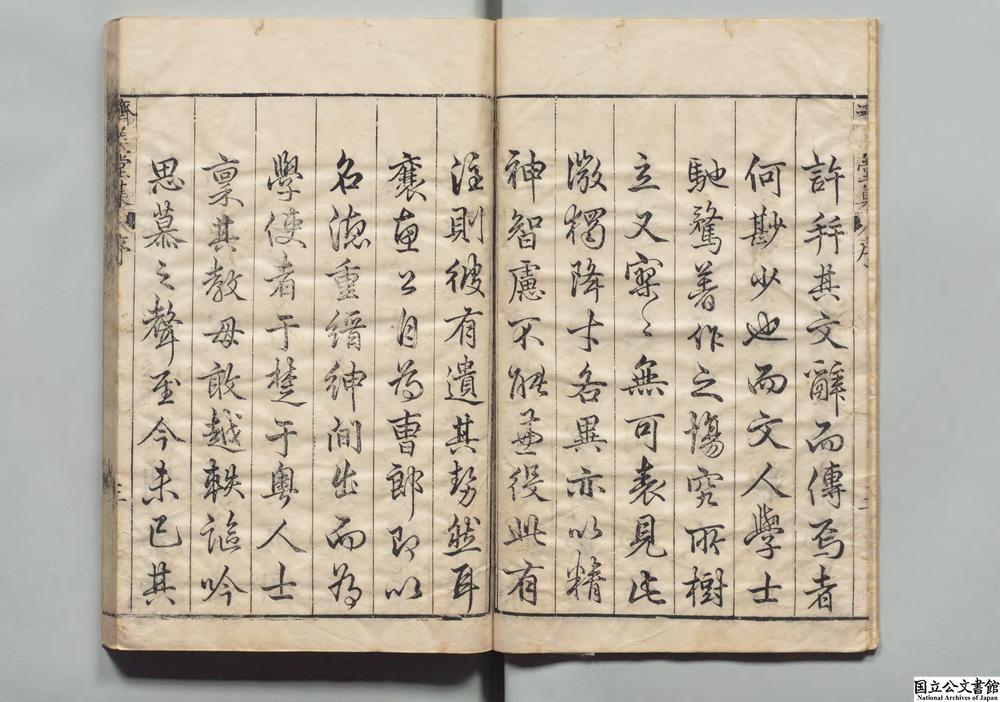 濟美堂集 序
許并其文辭而傳焉者
何尠少也而文人學士
馳騖著作之塲究所樹
立又寥〻無可表見此
微獨降才各異亦以精
神智慮不能兼役此有
注則彼有遺其勢然耳
襄惠公自為曹郎即以
名德重縉紳間出而為
學使者于楚于粵人士
稟其教毋敢越軼謳吟
思慕之聲至今未已其
濟美堂集 序 三
国立公文書館
National Archives of Japan